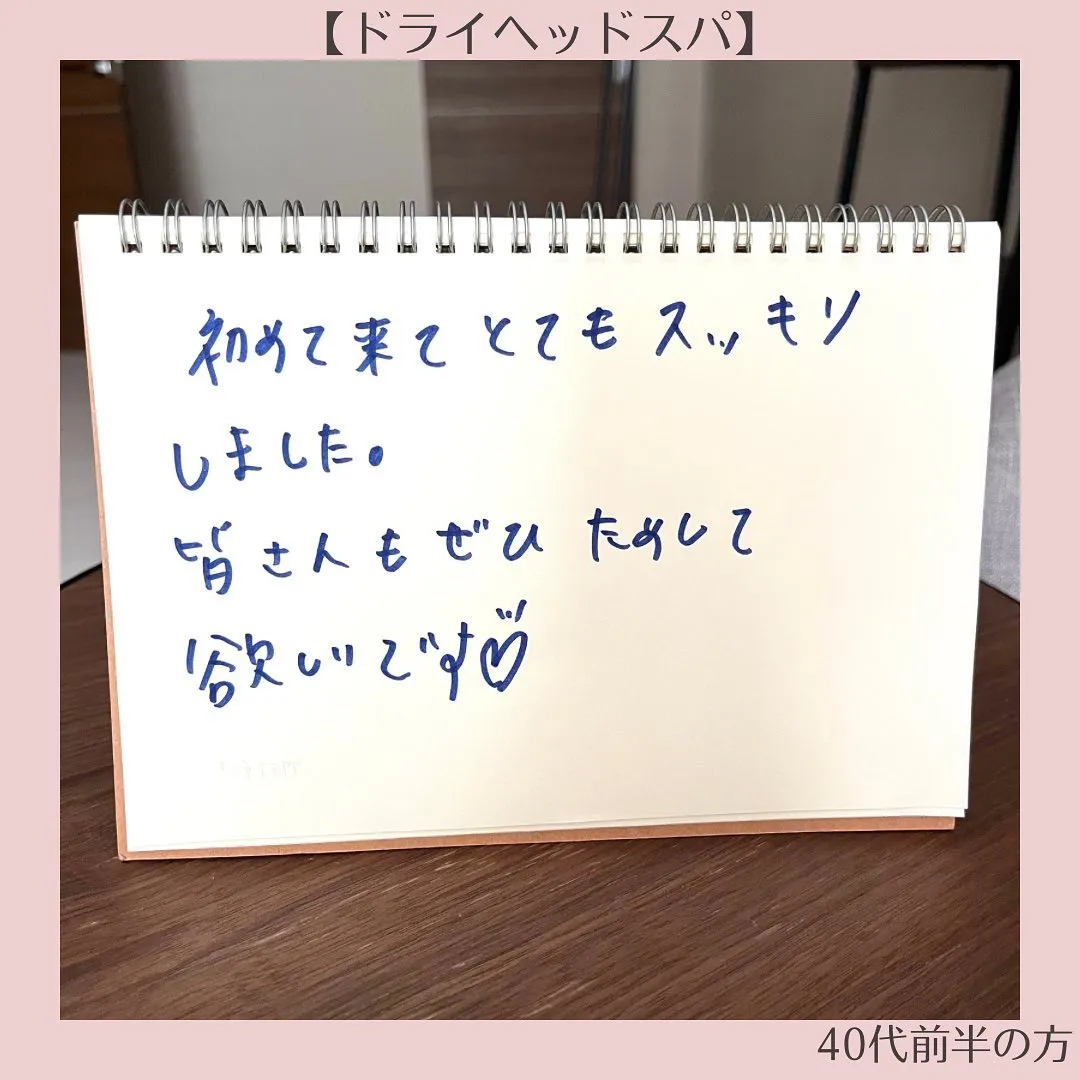 【ドライヘッドスパ】
初めて来て とても スッキリ
しました。
皆さんも ぜひ ためして
欲しいです♡
40代前半の方